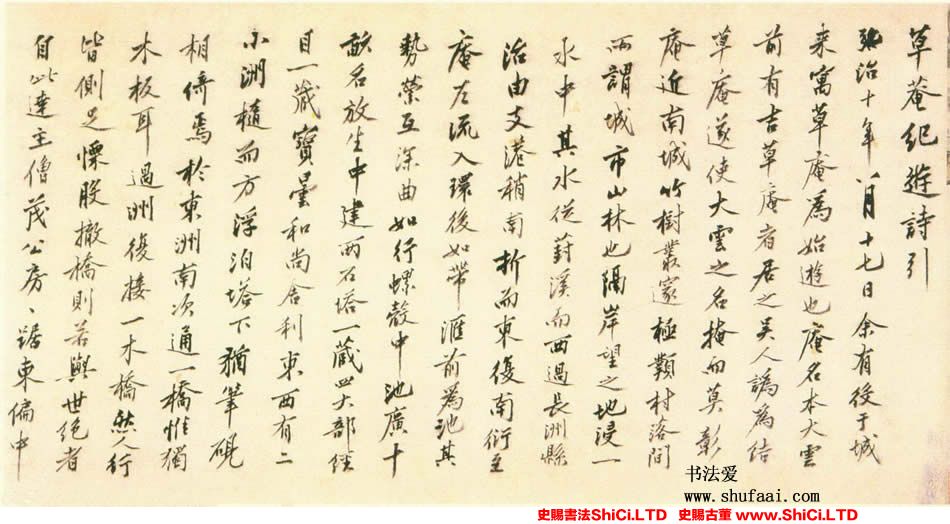 草菴紀遊詩引
弘治十年八月十七日余有役于城
来寓草庵為始遊也庵名本大雲
前有吉草庵者居之吴人譌為結
草庵遂使大雲之名掩而莫彰
庵近南城竹樹叢邃極類村落間
而謂城市山林也隔岸望之地浸一
水中其水従葑溪而西過長洲縣
治由支港稍南折而東復南衍至
庵左流入環後如帶滙前為池其
勢縈互深曲如行螺殼中池廣十
畝名放生中建兩石塔一藏四大部經
目一藏寶曇和尚舍利東西有二
小洲橢而方浮泊塔下猶筆硯
相倚焉於東洲南次通一橋惟獨
木板耳過洲復接一木橋然人行
皆側足慄股撤橋則若與世絕者
自此達主僧茂公房、踞東偏中
书法爱
www.shufaai.com
史賜書法ShiCi.LTD 史賜古董 www.ShiCi.LTD